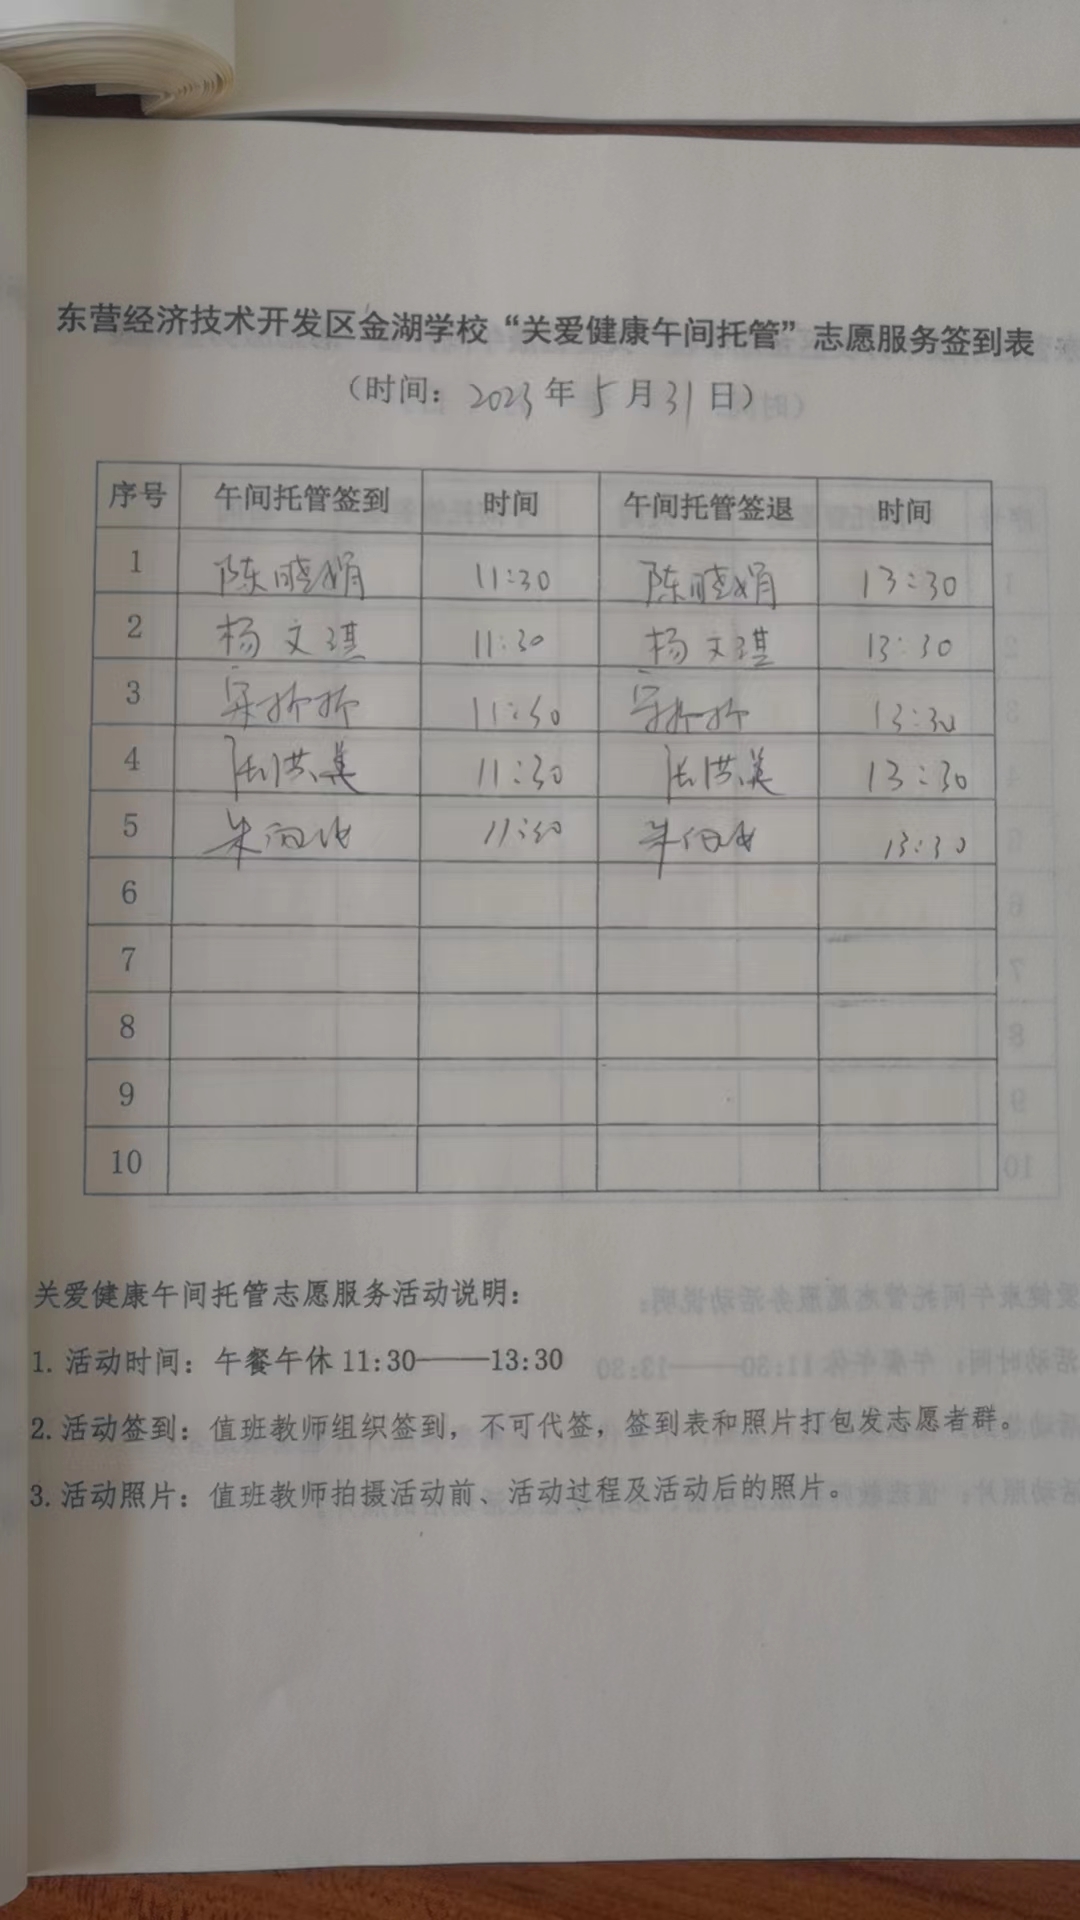 东营经济技术开发区金湖学校“关爱健康午间托管”志愿服务签到表
（时间：2023年5月31日）
序号 午间托管签到 时间 午间托管签退 时间
1 陈晓娟 11:30 陈晓娟 13:30
2 杨文琪 11:30 杨文琪 13:30
3 11:30 13:30
4 张洪美 11:30 张洪美 13:30
5 11:30 13:30
6
7
8
9
10
关爱健康午间托管志愿服务活动说明：
1. 活动时间：午餐午休 11:30——13:30
2. 活动签到：值班教师组织签到，不可代签，签到表和照片打包发志愿者群。
3. 活动照片：值班教师拍摄活动前、活动过程及活动后的照片。